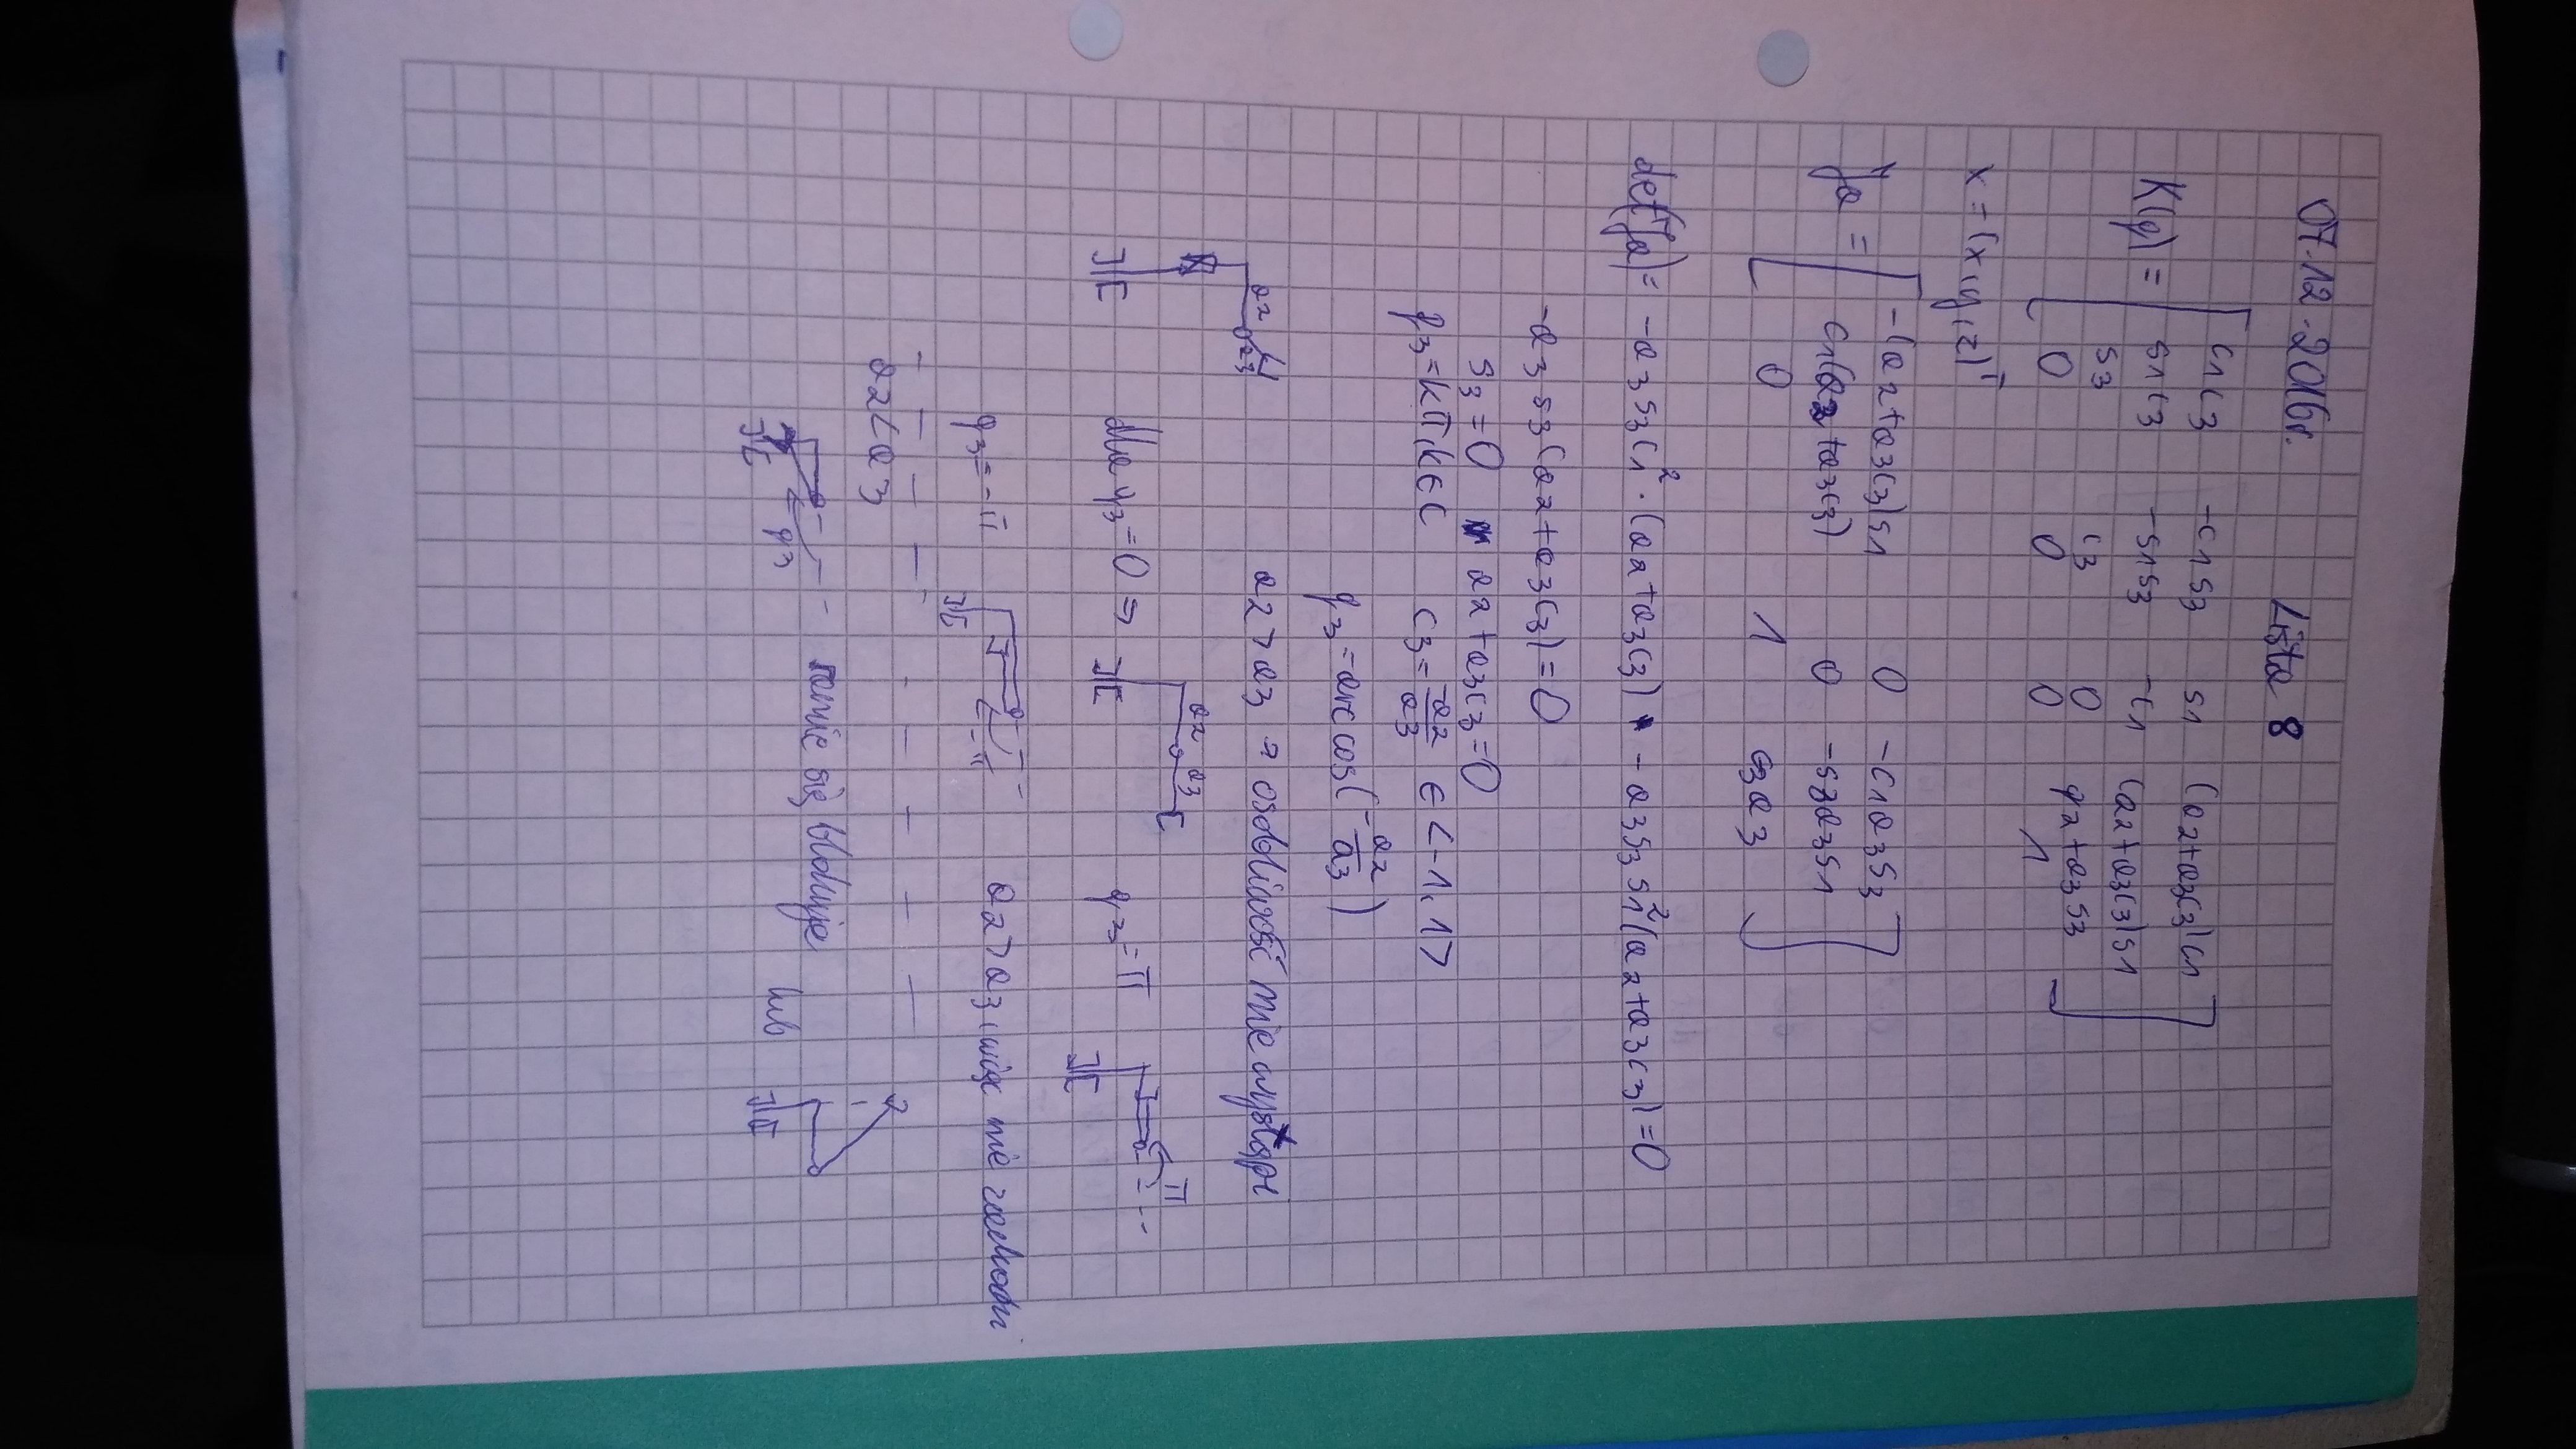 07.12.2016r. Lista 8
c1c3 -c1s3 s1 (a2+a3c3)c1
K(q) = s1c3 -s1s3 -c1 (a2+a3c3)s1
s3 c3 0 q2+a3s3
0 0 0 1
x=(x,y,z)ᵀ
-(a2+a3c3)s1 0 -c1a3s3
Ja = c1(a2+a3c3) 0 -s3a3s1
0 1 c3a3
det(Ja) = -a3s3c1² · (a2+a3c3) - a3s3s1²(a2+a3c3)=0
-a3s3(a2+a3c3)=0
s3=0 a2+a3c3=0
q3=kπ, k∈C c3= -a2/a3 ∈ <-1,1>
q3=arccos(-a2/a3)
a2 a3 a2>a3 → osobliwość nie występ
dla q3=0 ⇒ a2 a3 q3=π π
q3=-π -π a2>a3, więc nie zachodzi
a2<a3
q3 ramię się blokuje lub